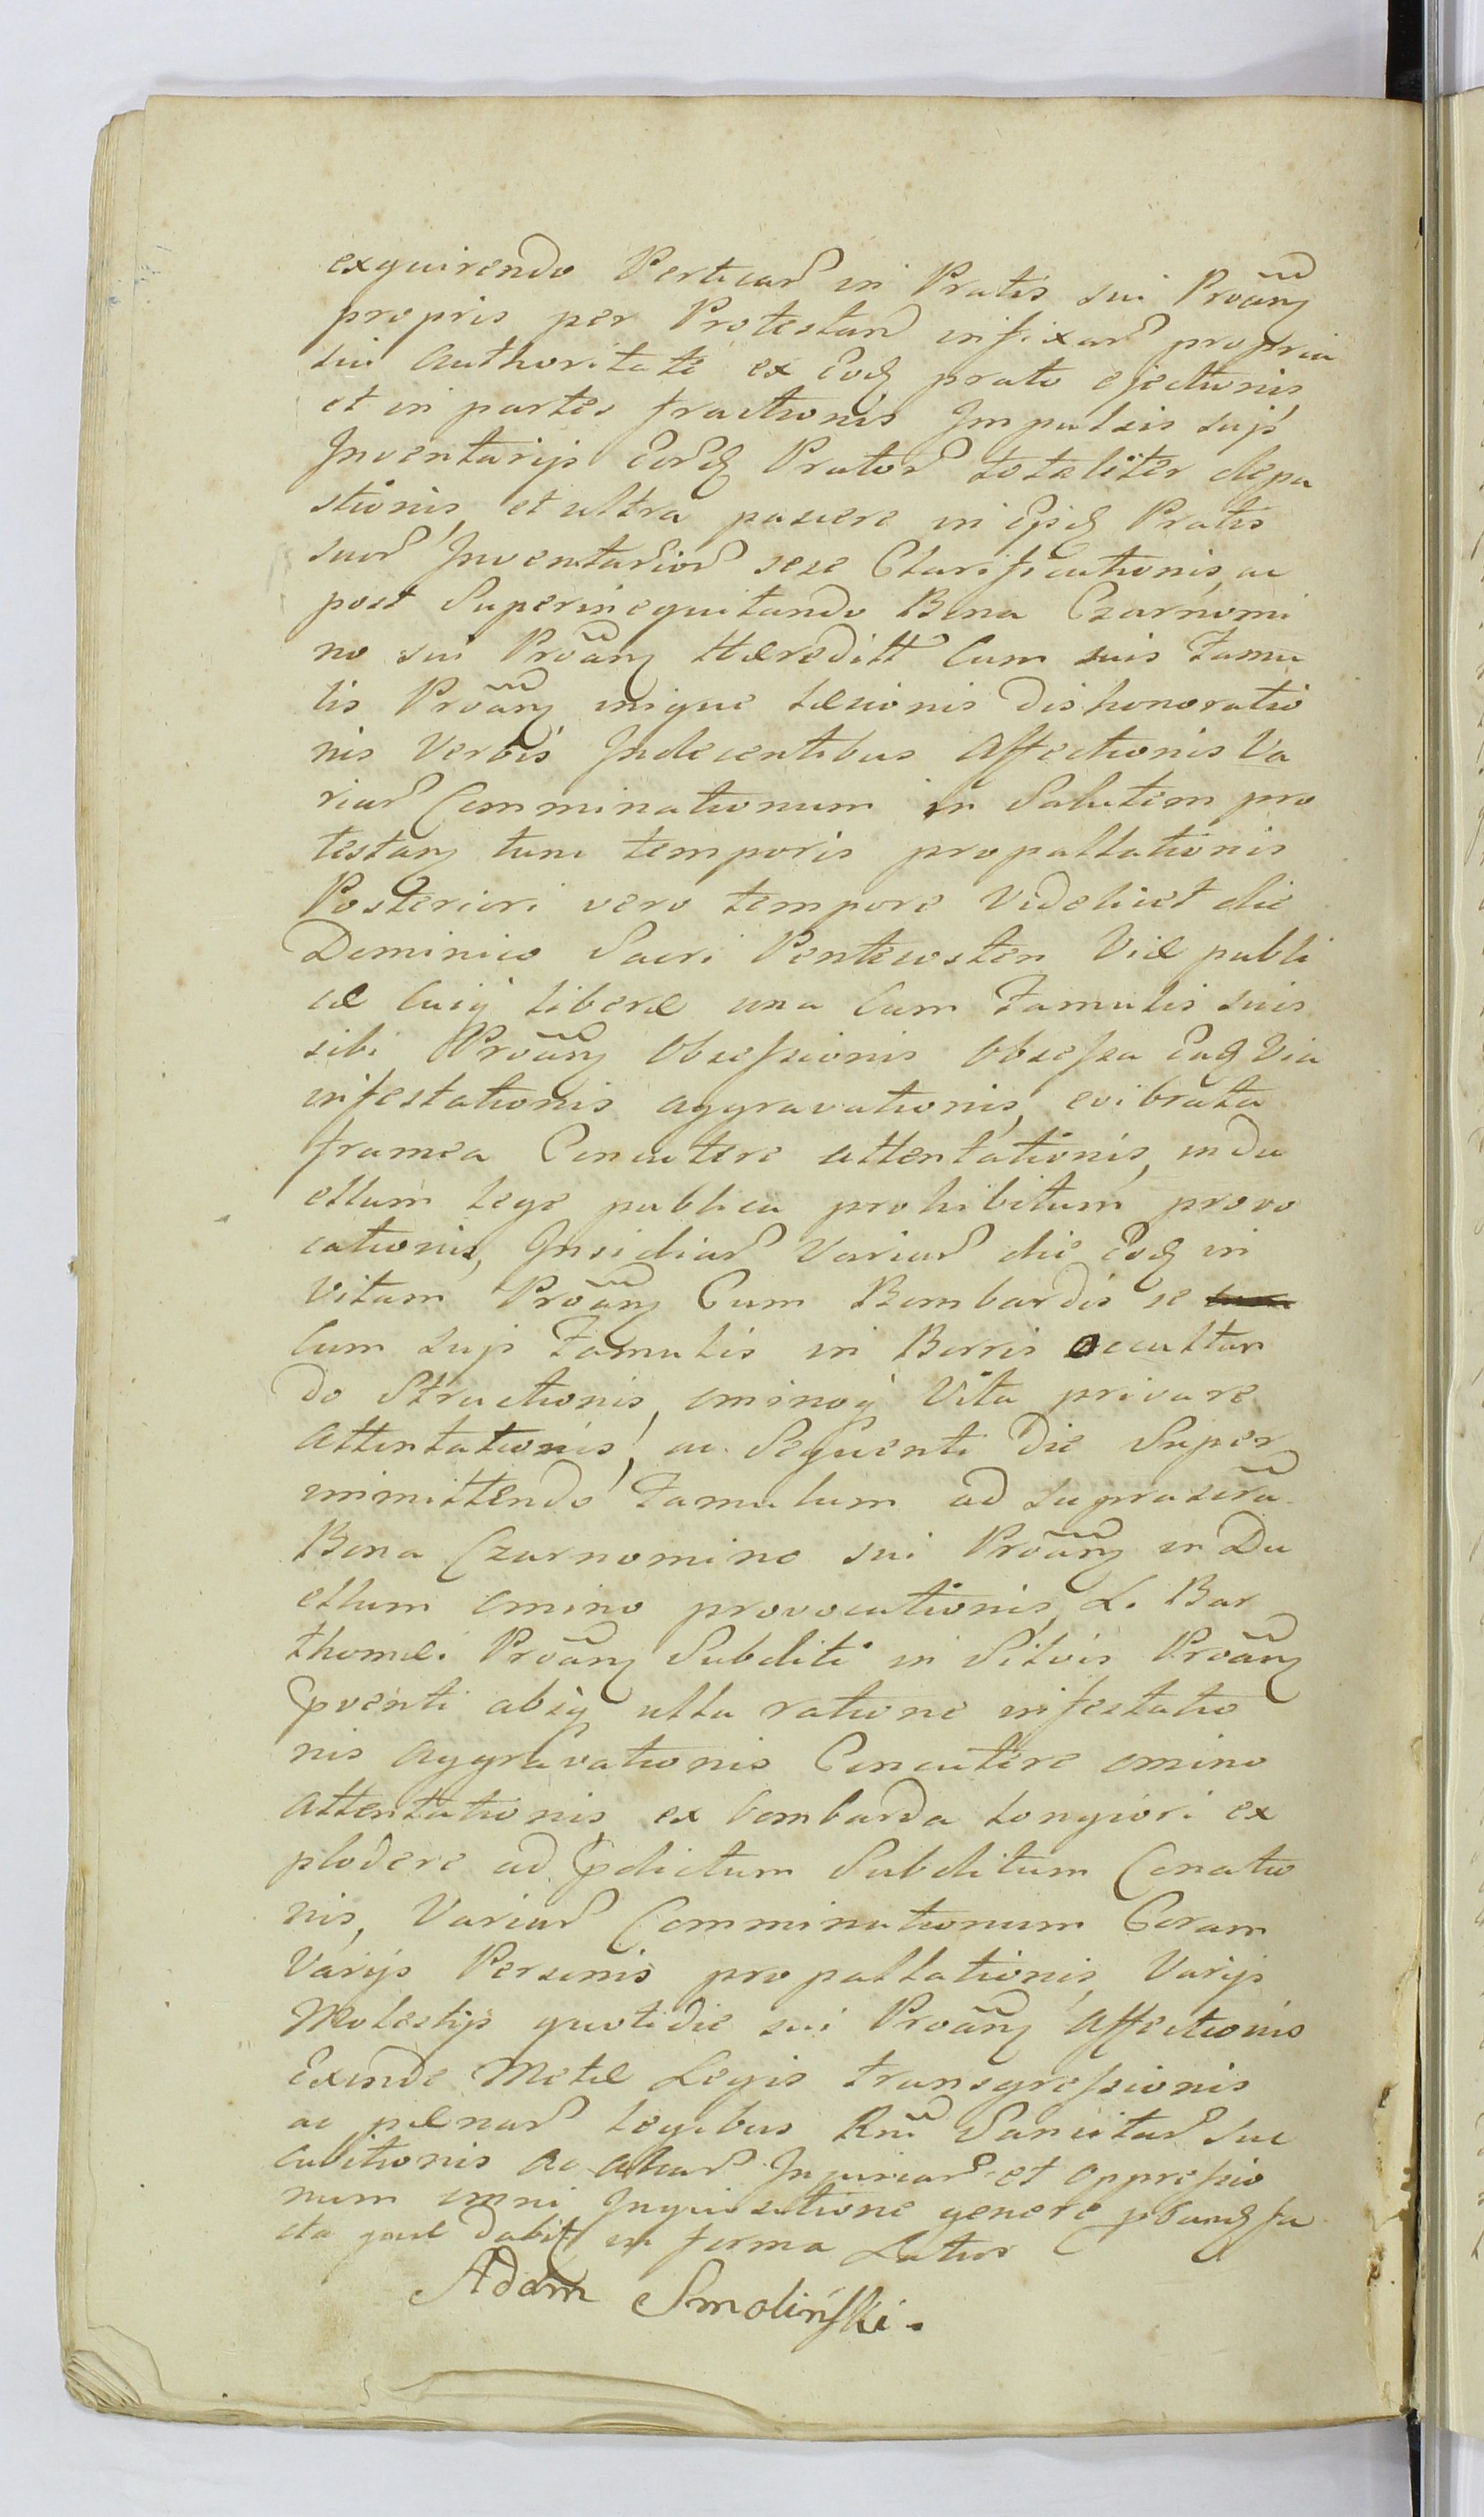 exquirendo Perticar̃ in Pratis sui Prõang
propris per Protestan̄ infixar̃ propria
sui Authoritate ex Eodȝ prato ejectionis
et in partes fractionis Impulsis suĳs
Inventarĳs Eordȝ Prator̃ totaliter depa
stionis, et ultra pascere in Ĩisdȝ Pratis
suor̃ Inventarior̃ sese Clarificationis, ac
post Superinequitando Bona Czarnomi
no sui Prõang Hæreditt̃ Cum suis Famu
lis Prõang inique læsionis Dishonoratio
nis Verbis Indecentibus Affectionis Va
riar̃ Comminationum in Salutem pro
testang tunc temporis propallationis
Posteriori vero tempore Videlicet die
Dominico Sacri Pentecosten Viæ publi
cæ Cuiqȝ liberæ una Cum Famulis suis
sibi Prõang Obsessionis Obsessa Eadȝ Via
infestationis aggravationis, evibrata
framea Concutere attentationis, in du
ellum lege publica prohibitum provo
cationis, Insidiar̃ Variar̃ die Eodȝ in
Vitam Prõang Cum Bombardis se
Cum suĳs Famulis in Borris occultan
do Structionis, ominoqȝ Vita privare
Attentationis, ac Sequenti Die Super
immittendo Famulum ad suprascr̃a
Bona Czarnomino sui Prõang in Du
ellum omino provocationis, L. Bar
thomei Prõang Subditi in Silvis Prõang
Inventi absqȝ ulla ratione infestatio
nis Aggravationis Concutere omino
Attentationis, ex bombarda longiori ex
plodere ad p̃dictum Subditum Conatio
nis, Variar̃ Comminationum Coram
Varĳs Personis propallationis, Varĳs
Molestĳs quotidie sui Prõang Affectionis
Exinde Metæ Legis transgressionis
ac pænar̃ legibus Rñi Sancitar̃ suc
cubitionis ac aliar̃ Injuriar̃ et oppressio
num omni Inquisitione genere
dabit̃ in forma Latior
Adam Smoliński.